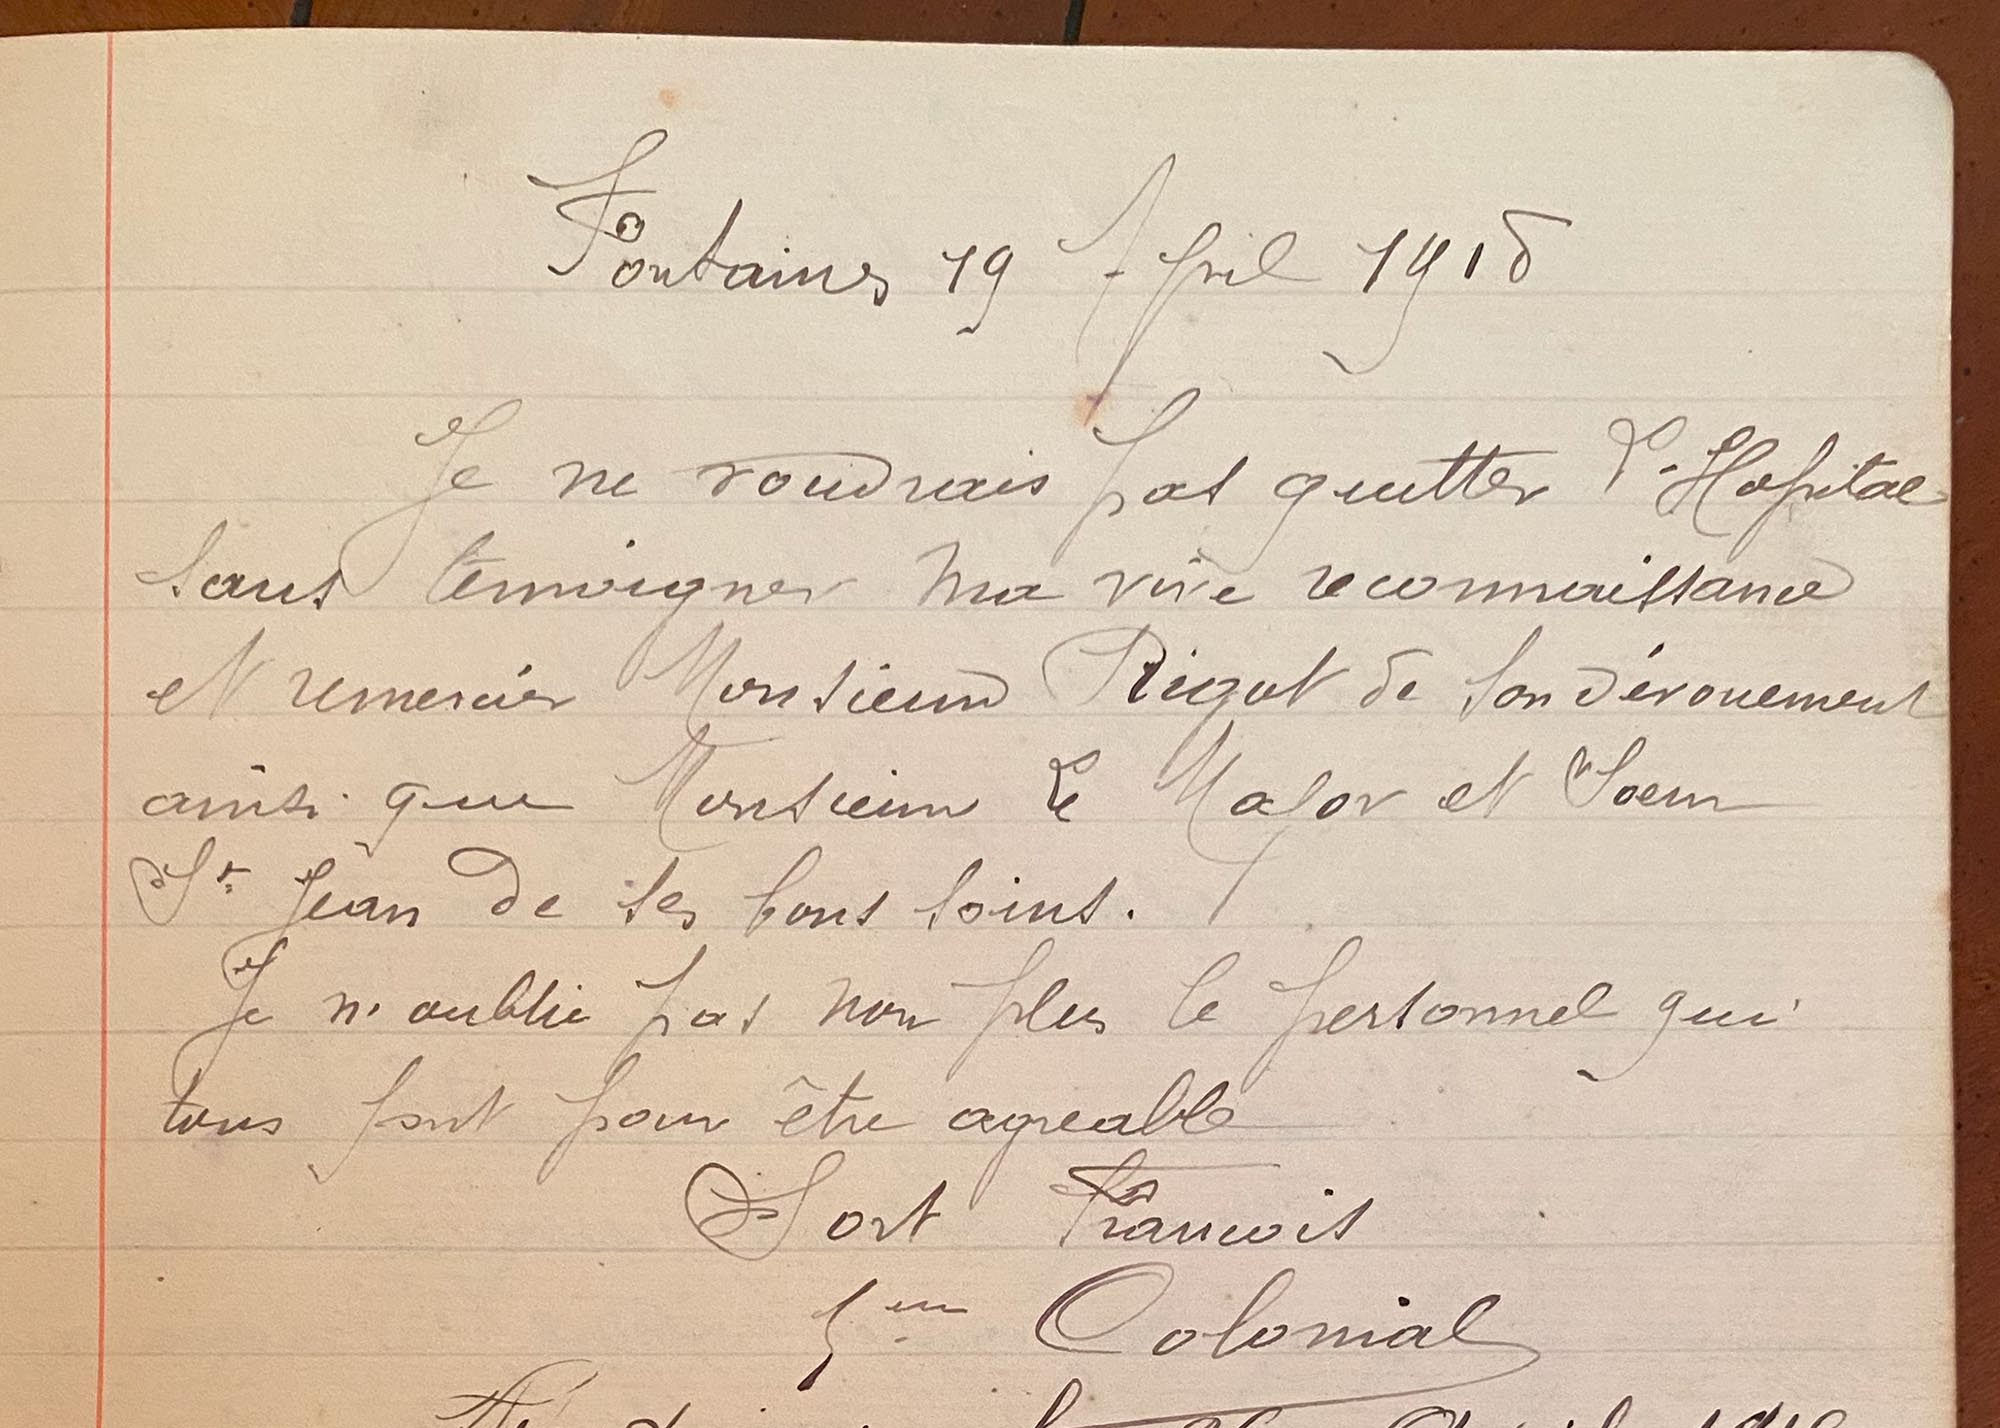 Fontaines 19 April 1915
Je ne voudrais pas quitter L'Hopital
sans témoigner ma vive reconnaissance
et remercier Monsieur Rigot de son dévouement
ainsi que Monsieur Le Major et Soeur
St Jean de ses bons soins.
Je n'oublie pas non plus le personnel qui
tous font pour être agreable
Sort Francois
5em Colonial